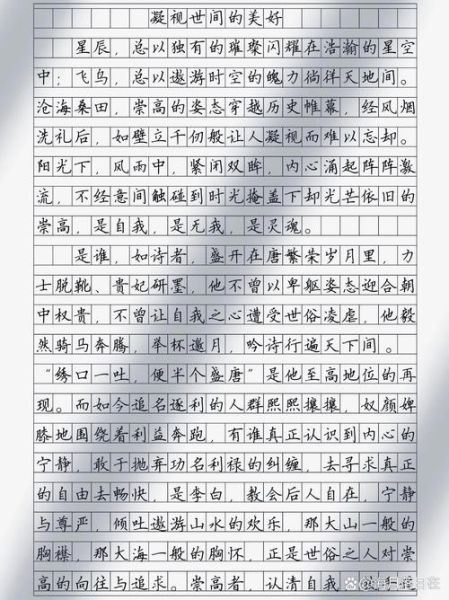 凝视世间的美好
星辰，总以独有的璀璨闪耀在浩瀚的星空
中；飞鸟，总以遨游时空的魄力徜徉天地间。
沧海桑田，崇高的姿态穿越历史帷幕，经风烟
洗礼后，如壁立千仞般让人凝视而难以忘却。
阳光下，风雨中，紧闭双眸，内心涌起阵阵激
流，不经意间触碰到时光掩盖下却光芒依旧的
崇高，是自我，是无我，是灵魂。
是谁，如诗者，盛开在唐繁荣岁月里，力
士脱靴、贵妃研墨，他不曾以卑躯姿态迎合朝
中权贵，不曾让自我之心遭受世俗凌虐，他毅
然骑马奔腾，举杯邀月，吟诗行遍天下间。
“绣口一吐，便半个盛唐”是他至高地位的再
现。而如今追名逐利的人群熙熙攘攘，奴颜婢
膝地围绕着利益奔跑，有谁真正认识到内心的
宁静，敢于抛弃功名利禄的纠缠，去寻求真正
的自由去畅快，是李白，教会后人自在，宁静
与尊严，倾吐遨游山水的欢乐，那大山一般的
胸襟，那大海一般的胸怀，正是世俗之人对崇
高的向往与追求。崇高者，认清自我